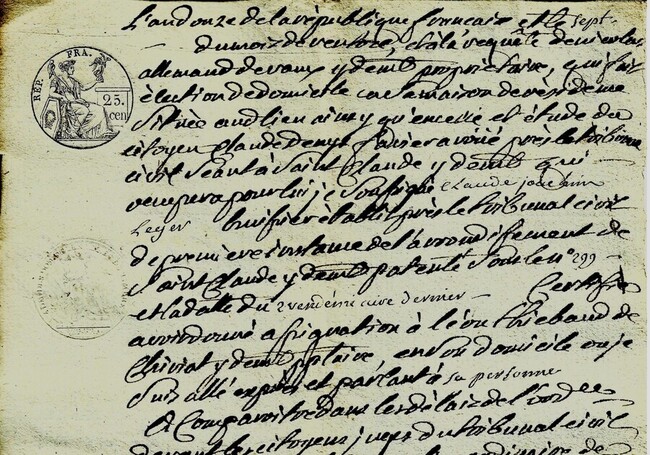 L'an douze de la république française et le sept
du mois de ventose, et à la requête de nicolas
allemand de vaux y demt propriétaire, qui fait
élection de domicile en sa maison de résidence
située audit lieu ainsy qu'encelle et étude du
citoyen Claude denys avoué près le tribunal
civil séant à Saint Claude y demt qui
occupera pour lui, je soussigné Claude joachim
huissier établi près le tribunal civil
de première instance de l'arrondissement de
Saint Claude y demt patenté sous le no 299
et la datte du 2 vendémiaire dernier Certifie
avoir donné assignation à léon thiébaud de
Chiriat y demt, en son domicile ou je
suis allé exprès et parlant à sa personne
A Comparoitre dans les délais de l'ordce
devant les citoyens juges du tribunal civil
RÉP. FRA.
25.
cen